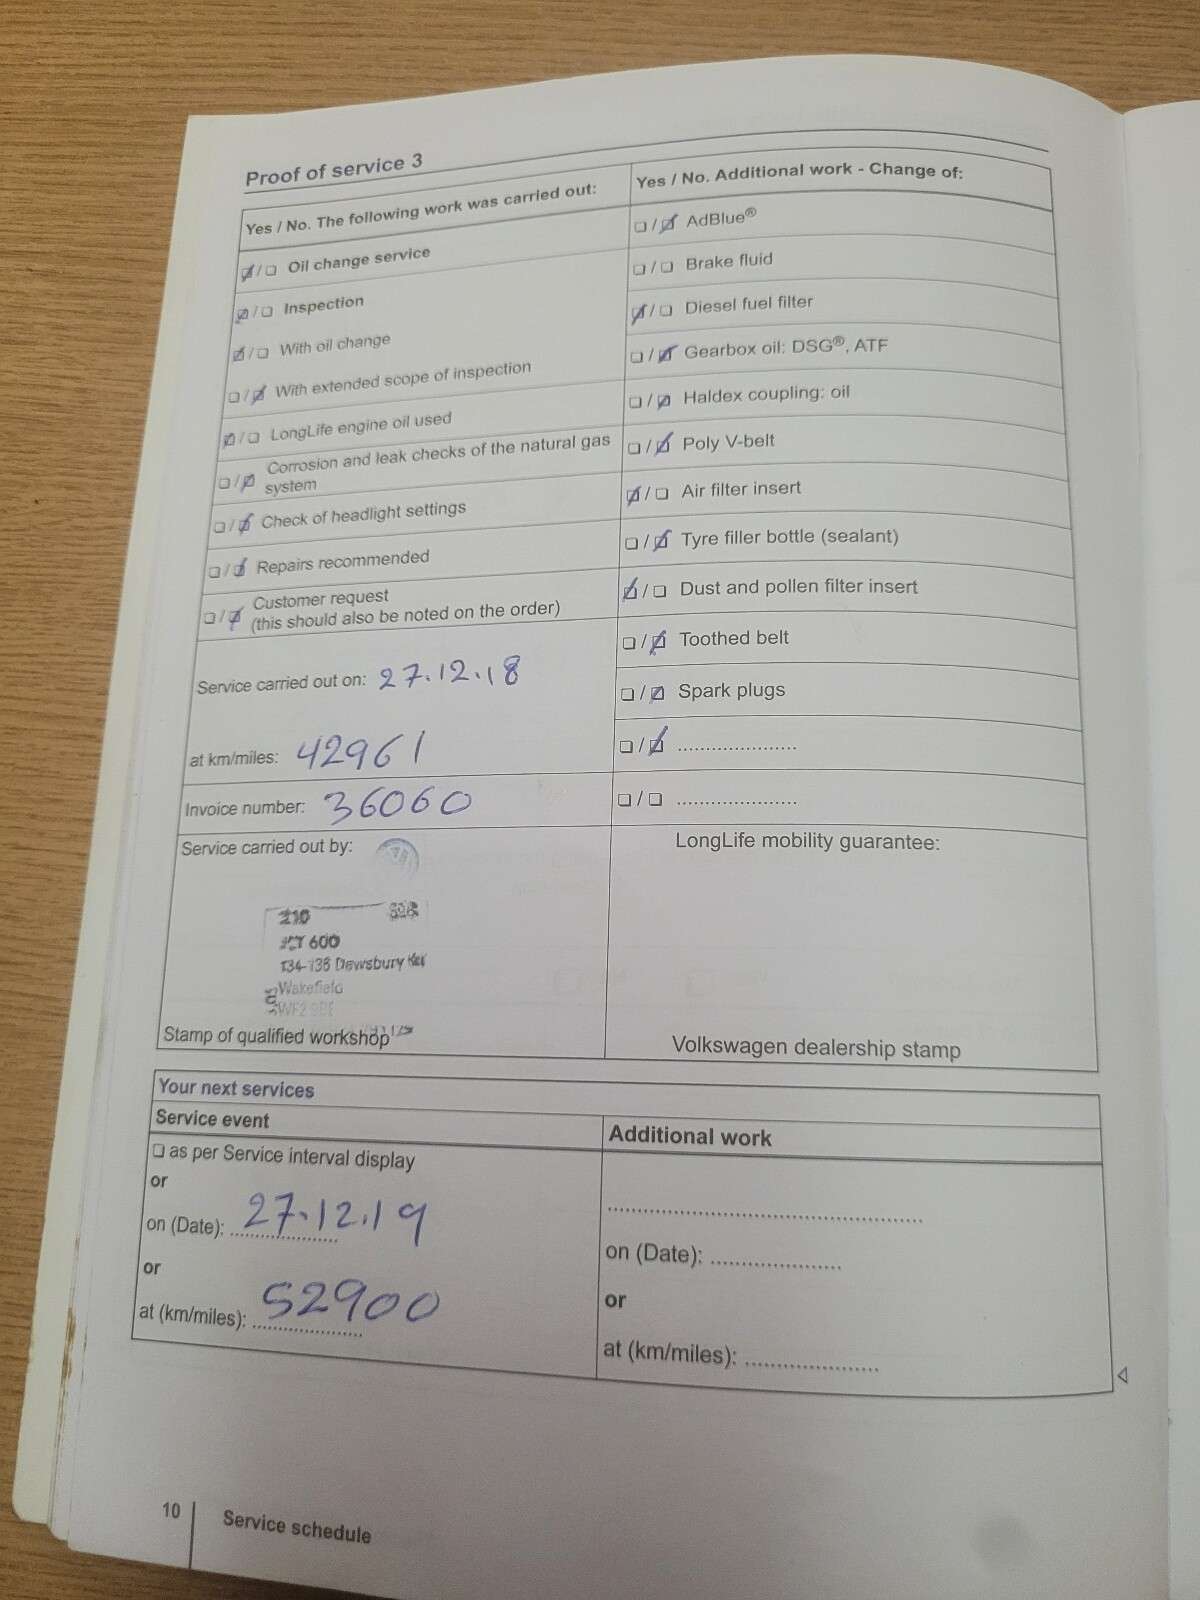 Proof of service 3
Yes / No. The following work was carried out:
☑/☐ Oil change service
☑/☐ Inspection
☑/☐ With oil change
☐/☑ With extended scope of inspection
☑/☐ LongLife engine oil used
☐/☑ Corrosion and leak checks of the natural gas
system
☐/☑ Check of headlight settings
☐/☑ Repairs recommended
☐/☑ Customer request
(this should also be noted on the order)
Service carried out on: 27.12.18
at km/miles: 42961
Invoice number: 36060
Service carried out by:
210
600
134-138 Dewsbury
Wakefield
WF2
Stamp of qualified workshop
Yes / No. Additional work - Change of:
☐/☑ AdBlue®
☐/☐ Brake fluid
☑/☐ Diesel fuel filter
☐/☑ Gearbox oil: DSG®, ATF
☐/☑ Haldex coupling: oil
☐/☑ Poly V-belt
☑/☐ Air filter insert
☐/☑ Tyre filler bottle (sealant)
☑/☐ Dust and pollen filter insert
☐/☑ Toothed belt
☐/☑ Spark plugs
☐/☑ .....................
☐/☐ .....................
LongLife mobility guarantee:
Volkswagen dealership stamp
Your next services
Service event
☐ as per Service interval display
or
on (Date): 27.12.19
or
at (km/miles): 52900
Additional work
..................................................
on (Date): .....................
or
at (km/miles): .....................
10
Service schedule